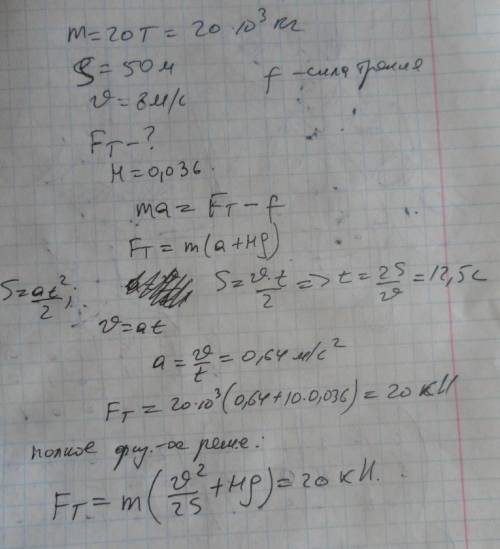 m = 20т = 20·10³ кг
S = 50 м
f - сила трения
v = 8 м/с
Fт - ?
μ = 0,036
ma = Fт - f
Fт = m(a + μg)
S = at²/2; S = v·t/2 => t = 2S/v = 12,5 с
v = at
a = v/t = 0,64 м/с²
Fт = 20·10³(0,64 + 10·0,036) = 20 кН
полное физ.-ое реше.:
Fт = m(v²/2S + μg) = 20 кН.